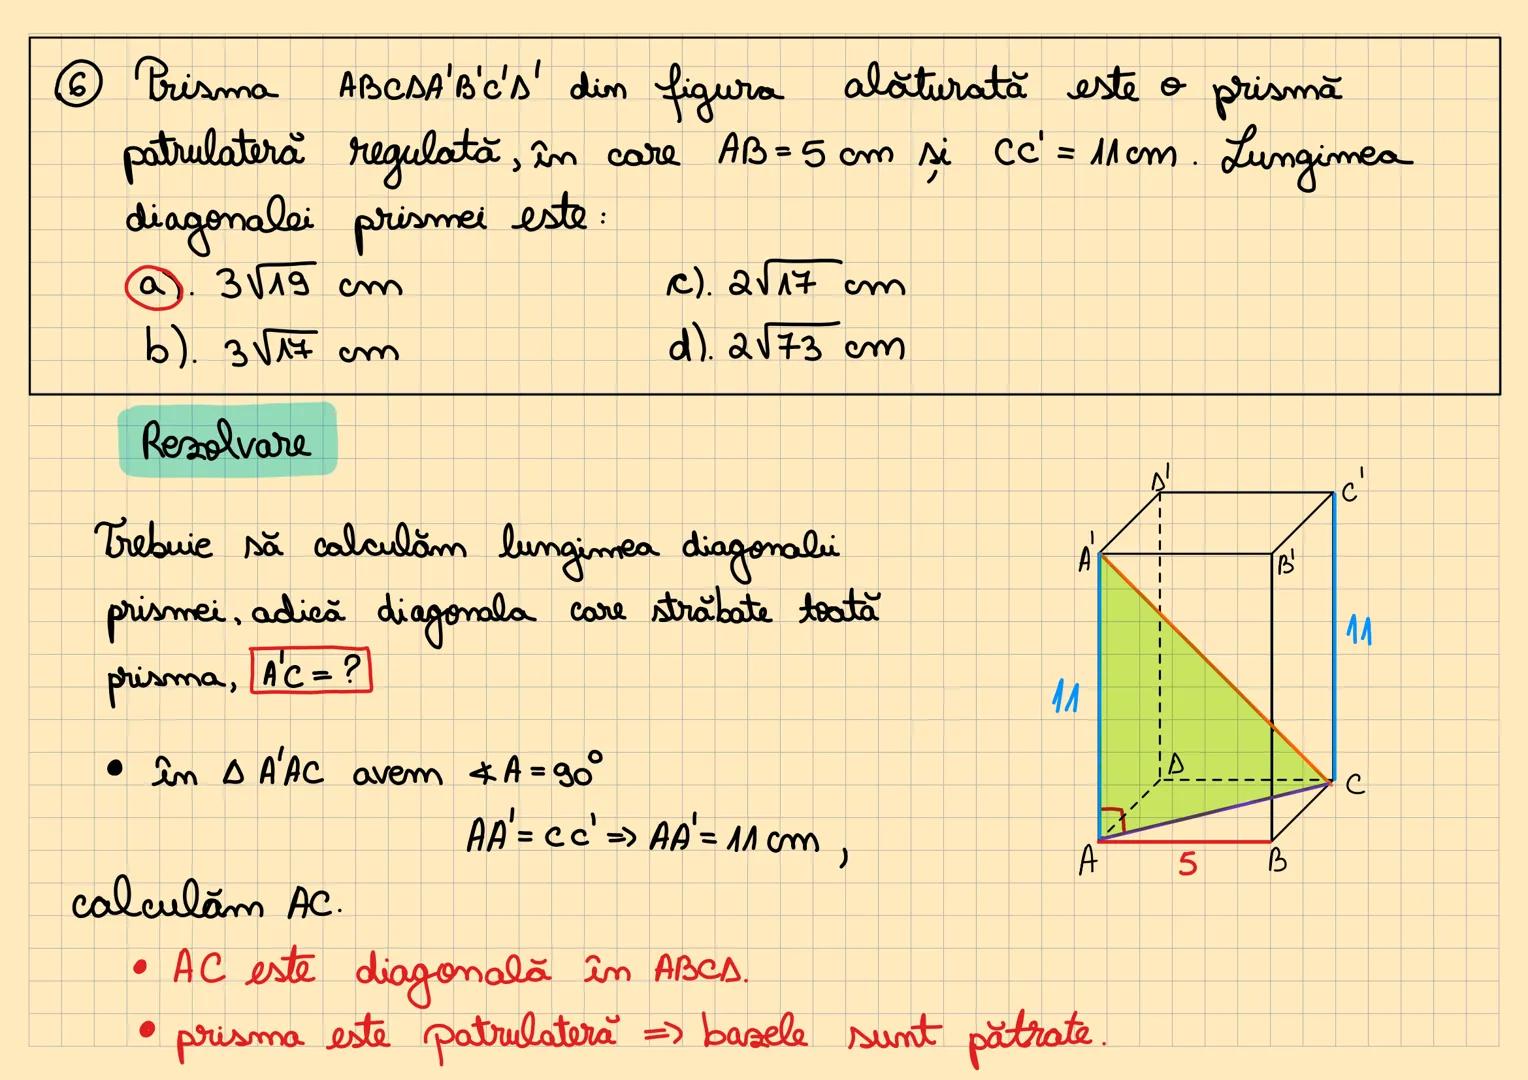 6 Prisma ABCDA'B'C'D' din figura alăturată este o prismă
patrulateră regulată, în care AB = 5 cm și CC' = 11 cm. Lungimea
diagonalei prismei este:
a). 3√19 cm c). 2√17 cm
b). 3√17 cm d). 2√73 cm
Rezolvare
Trebuie să calculăm lungimea diagonalei
prismei, adică diagonala care străbate toată
prisma, A'C = ?
• în Δ A'AC avem ∢A = 90°
AA' = CC' => AA' = 11 cm,
calculăm AC.
• AC este diagonală în ABCD.
• prisma este patrulateră => bazele sunt pătrate.
D'
C'
A'
B'
11
11
D
C
A
5
B